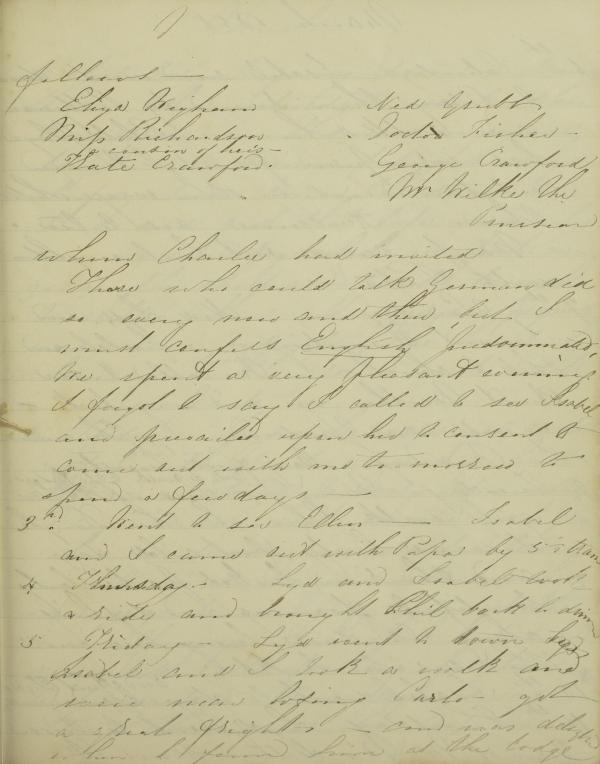 follows —
Eliza Wigham Ned Grubb
Miss Richardson Doctor Fisher —
a cousin of heis —
Kate Crawford. George Crawford
Mr Wilke the
Prussian
whom Charlie had invited
Those who could talk German did
so every now and then, but I
must confess English predominated,
We spent a very pleasant evening.
I forgot to say I called to see Isabel
and prevailed upon her to consent to
come out with me to morrow to
spend a few days —
3rd. Went to see Ellen — Isabel
and I came out with Papa by 5
4 Thursday — Lyd and Isabel took
a ride and brought Phil back to dinner
5 Friday — Lyd went to town
Isabel and I took a walk and
were near losing Carlo — got
a great fright — and was delighted
when I found him at the lodge